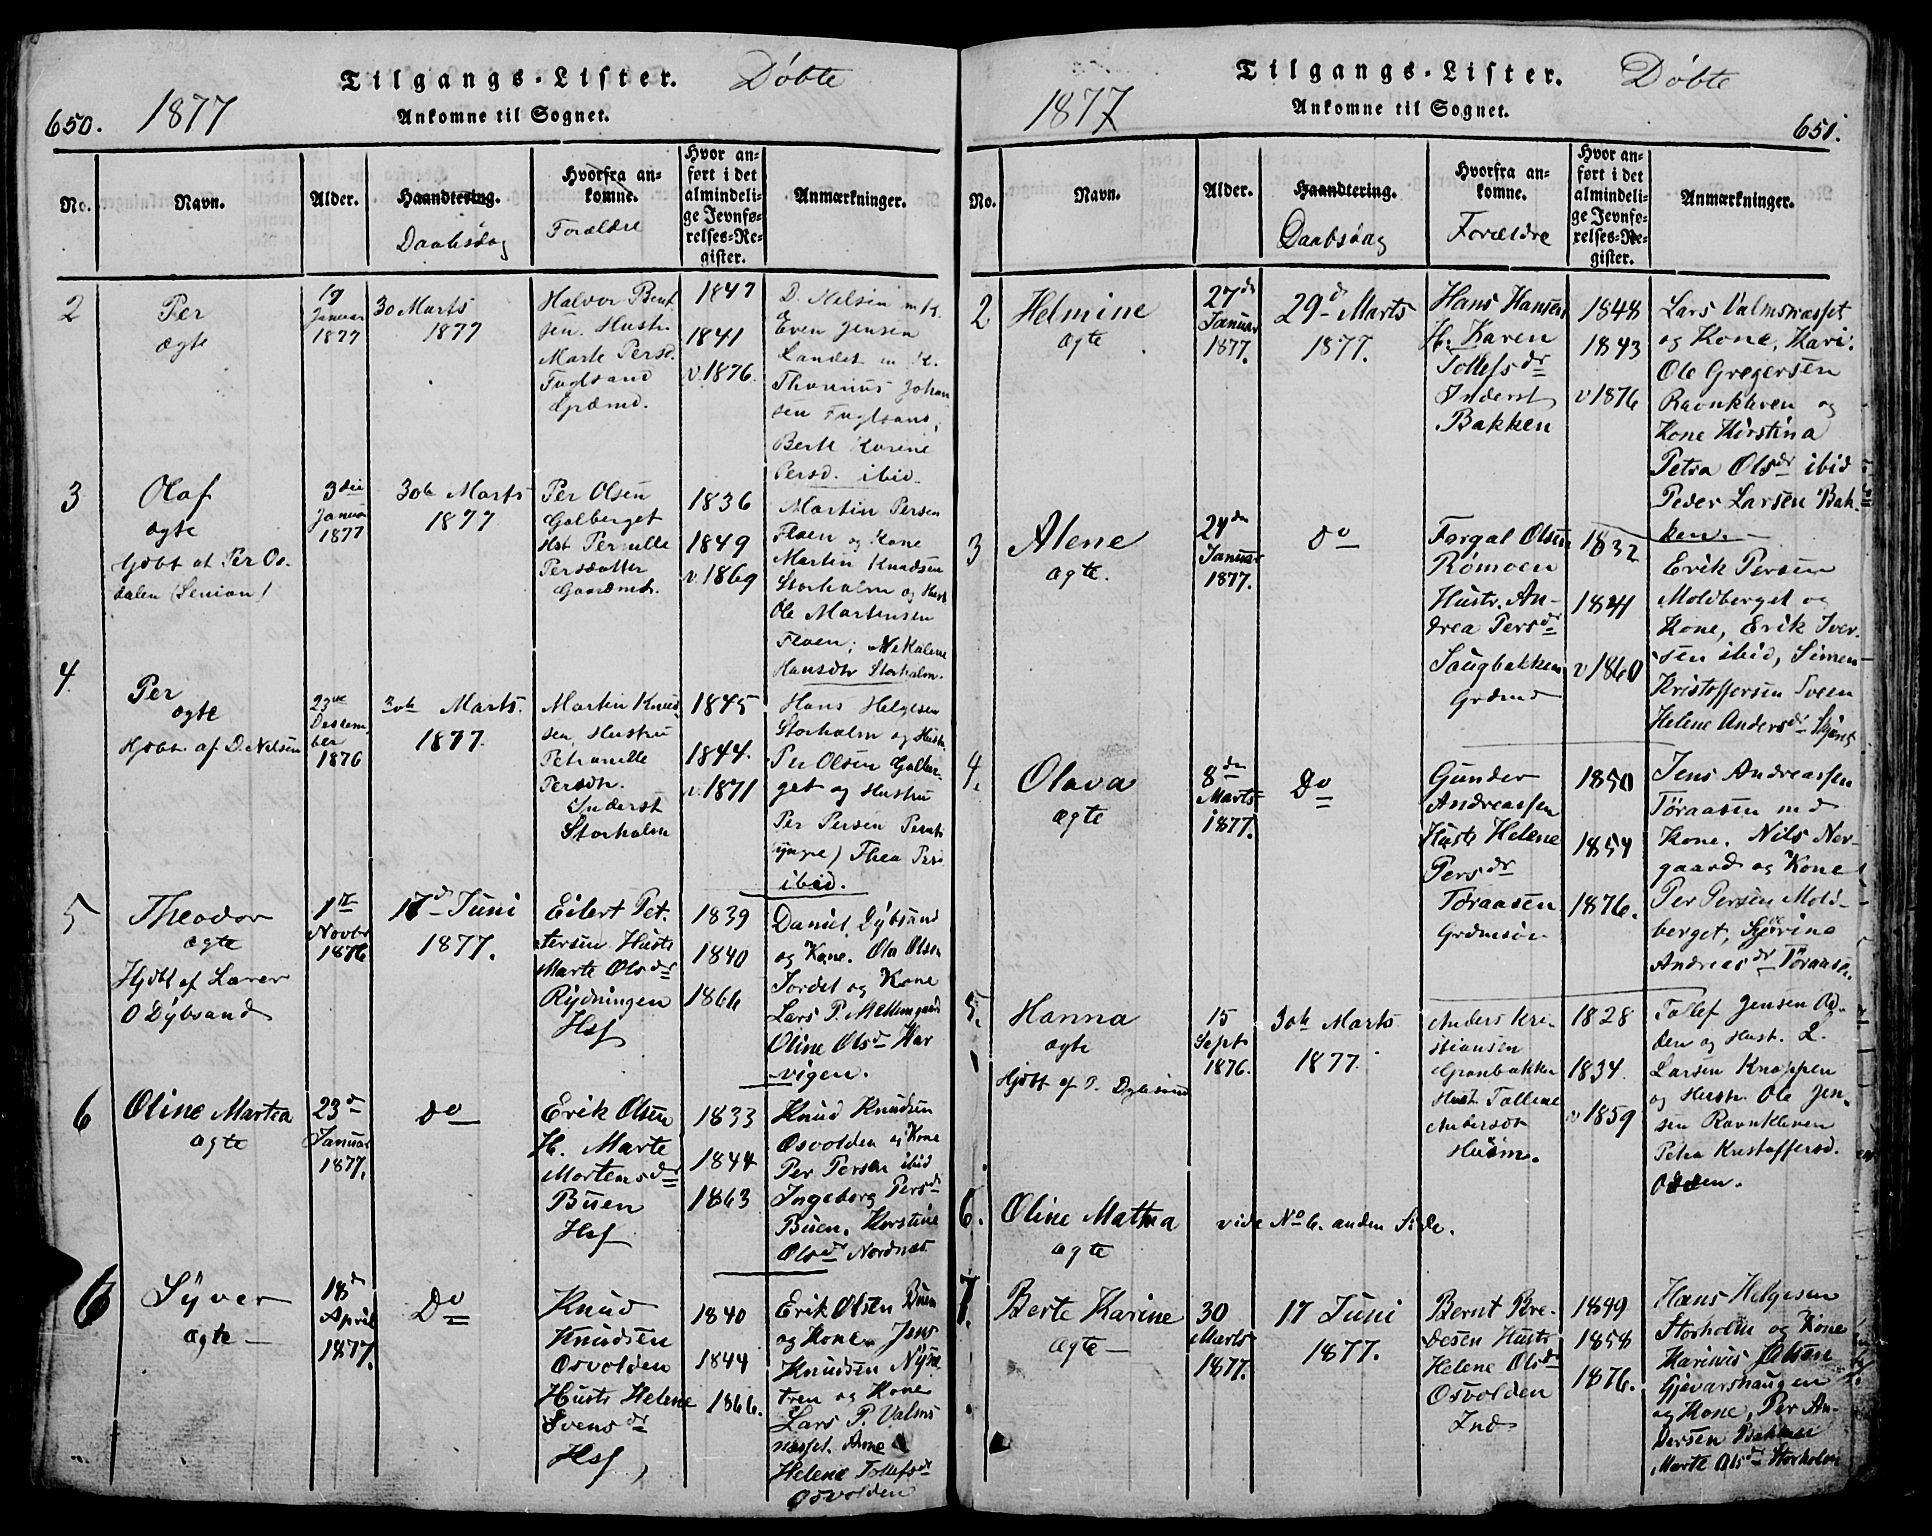 650.
1877
Tilgangs-Lister.
Døbte
Ankomne til Sognet.
No.
Navn.
Alder.
Haandtering.
Daabsdag
Hvorfra an-
komne.
Forældre
Hvor an-
ført i det
almindeli-
ge Jevnfø-
relses-Re-
gister.
Anmærkninger.
2
Per
ægte
19
Januar
1877
30 Marts
1877
Halvor Bent
sen. Hustr.
Marte Persd.
Fuglsand
Grdmd.
1847
1841
v. 1876.
D. Nilsen m K.
Even Jensen
Landet m K.
Thorinus Johan
sen Fuglsand,
Berte Karine
Persd. ibid.
3
Olaf
ægte
Hjdbt af Per Os-
dalen (Senion)
3die
Januar
1877
30te Marts
1877
Per Olsen
Galberget
Hst Pernille
Persdatter
Gaardmd.
1836
1849
v. 1869
Martin Persen
Floen og Kone
Martin Knudsen
Storholm og Hust
Ole Martinsen
Floen;
Hansdtr Storholm.
4.
Per
ægte
Hjdbt. af D. Nilsen
23de
Decem-
ber
1876
30te Marts.
1877.
Martin Knud-
sen, Hustru
Petronille
Persdtr.
Inderst
Storholm
1845
1844.
v. 1871
Hans Helgesen
Storholm og Hustr.
Per Olsen Galber-
get og Hustru
Per Persen
yngre) Thea Pers
ibid.
5
Theodor
ægte
Hjdbt af Lærer
O Dybsand
1ste
Novbr
1876
17d Juni
1877.
Eilert Pet-
tersen Hustr
Marte Olsdr
Rydningen
Hsf
1839
1840
1866
Daniel Dybsand
og Kone. Ola Olsen
Jordet og Kone
Lars P. Mellemgaard
Oline Olsdr Har
vigen.
6
Oline Martea
ægte
23d
Januar
1877.
Do
Erik Olsen
H. Marte
Mortensdr
Buen
Hsf
1833
1844
1863
Knud Knudsen
Osvolden og Kone
Per Persen ibid
Ingeborg Persdr
Buen. Kirstine
Olsdr Nordnæs
6
Syver
ægte —
18d
April
1877.
Do
Knud
Knudsen
Osvolden
Hustr Helene
Svensdr
Hsf
1840
1844
1866.
Erik Olsen Buen
og Kone. Jens
Knudsen Nysæ
tren og Kone
Lars P. Valms
næsset. Anne
Helene Tollefsdr
Osvolden
1877
Tilgangs-Lister.
Døbte
Ankomne til Sognet.
651.
No.
Navn.
Alder.
Haandtering.
Daabsdag
Hvorfra an-
komne.
Forældre
Hvor an-
ført i det
almindeli-
ge Jevnfø-
relses-Re-
gister.
Anmærkninger.
2
Helmine
ægte
27de
Januar
1877.
29d Marts
1877.
Hans Hansen
H. Karen
Tollefsdr
Inderst
Bakken
1848
1843
v 1876
Lars Valmsnæsset
og Kone, Kari.
Ole Gregersen
Ravnkleven og
Kone Kirstina
Petra Olsdr ibid
Peder Larsen Bak-
ken.
3
Alene
ægte.
24de
Januar
1877.
Do
Torgal Olsen
Rømoen
Hustr. An-
drea Persdr
Saugbakken
Grdmd
1832
1841
v 1860
Erik Persen
Moldberget og
Kone, Erik Iver-
sen ibid, Simen
Kristoffersen Sveen
Helene Andersdr Skjæret
4.
Olava
ægte
8de
Marts
1877.
Do
Gunder
Andreassen
Hustr Helene
Persdr
Tøraasen
Grdmsøn
1850
1854
1876.
Jens Andreassen
Tøraasen med
Kone. Nils Nor-
gaard og Kone
Per Persen Mold-
berget, Severine
Andreasdr Tøraasen.
5.
Hanna
ægte
Hjdbt af P. Dybsand
15
Septr
1876.
30te Marts
1877.
Anders Kri-
stiansen
Granbakken
Hust. Tollene
Andersdtr
Husm.
1828
1834.
v 1859
Tollef Jensen Od-
den og Hust. L.
Larsen Knappen
og Hustr. Ole Jen-
sen Ravnkleven
Petra Kristoffersd.
Odden.
6.
Oline Mathea
ægte
vide No 6. anden Side.
7.
Berte Karine
ægte —
30
Marts
1877.
17 Juni
1877.
Bernt Bre-
desen Hustr
Helene Olsdr
Osvolden
Ind
1849
1858
1876.
Hans Helgesen
Storholm og Kone
Karinus Olsen
Gjevarshaugen
og Kone, Per An-
dersen Bakken
Marte Olsdr Storholm